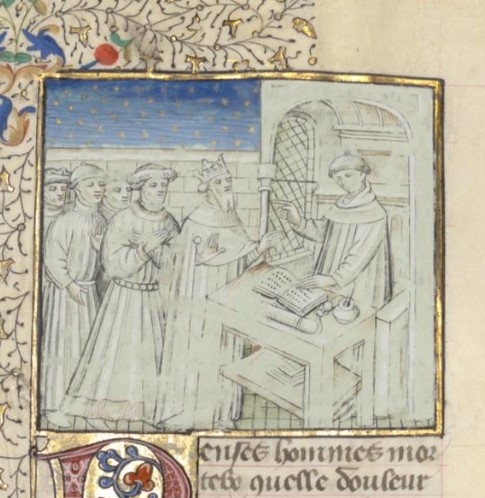 Penses hommes mor
telz quelle douleur